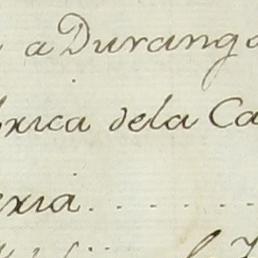 a Durango
brica dela Ca
exia